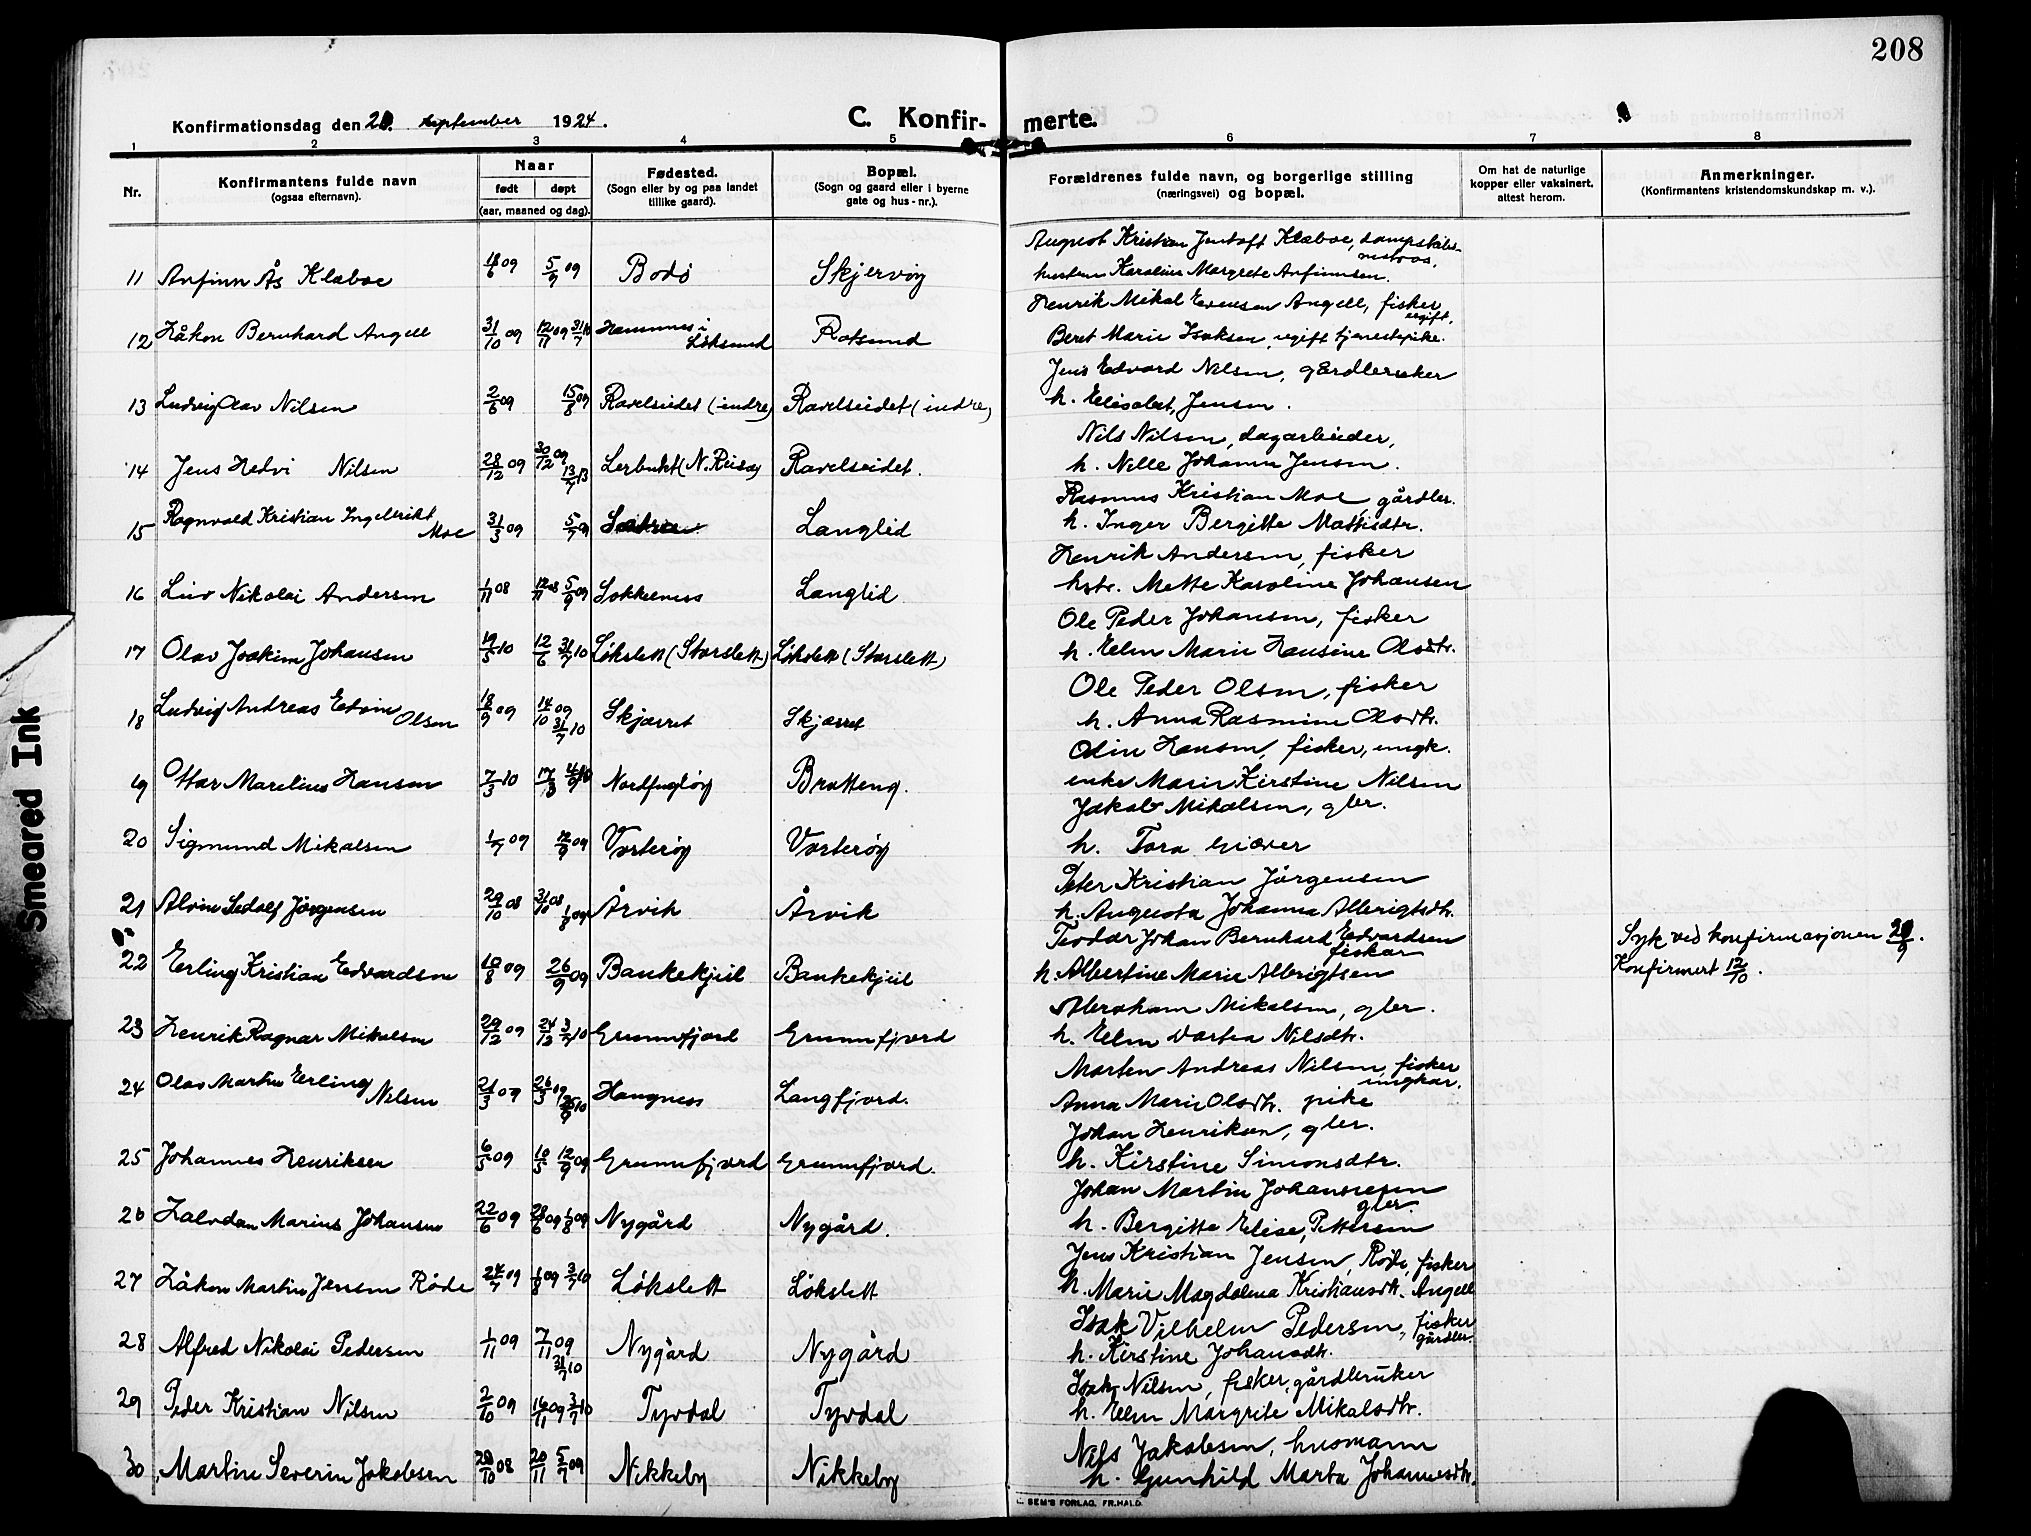 208
Konfirmationsdag den 20. september 1924.
C. Konfir- merte.
1 2 3 4 5 6 7 8
Nr.
Konfirmantens fulde navn
(ogsaa efternavn).
Naar
født døpt
(aar, maaned og dag).
Fødested.
(Sogn eller by og paa landet
tillike gaard).
Bopæl.
(Sogn og gaard eller i byerne
gate og hus - nr.).
Forældrenes fulde navn, og borgerlige stilling
(næringsvei) og bopæl.
Om hat de naturlige
kopper eller vaksinert,
attest herom.
Anmerkninger.
(Konfirmantens kristendomskundskap m. v.).
August Kristian Jentoft Klæboe,
11 Anfinn Ås Klæboe 18/6 09 5/9 09 Bodø Skjervøy hustru Karoline Margrete Anfinnsen.
Henrik Mikal Evensen Angell, fisker, ugift.
12 Håkon Bernhard Angell 31/10 09 12/11 09 31/7 10 Hamnnes i Løksund Rotsund Beret Marie Isaksen, ugift tjenestepike.
Jens Edvard Nilsen, gårdbruker
13 Ludvig Olav Nilsen 2/6 09 15/8 09 Ravelseidet (indre) Ravelseidet (indre) h. Elisabet Jensen.
Nils Nilsen, dagarbeider,
14 Jens Hedvi Nilsen 28/12 09 30/12 09 13/7 13 Lerbukt (N. Reisa) Ravelseidet. h. Nille Johanna Jensen.
Rasmus Kristian Moe, gårdbr.
15 Ragnvald Kristian Ingebrikt Moe 31/3 09 5/7 09 Langlid h. Inger Bergitte Mattisdtr.
Henrik Andersen, fisker
16 Nikolai Andersen 1/11 08 12/11 08 5/9 09 Sokkelness Langlid hstr. Mette Karoline Johansen
Ole Peder Johansen, fisker
17 Olav Joakim Johansen 19/5 10 12/6 31/7 10 Løkslett (Storslett) Løkslett (Storslett) h. Elen Marie Hansine Olsdtr.
Ole Peder Olsen, fisker
18 Ludvig Andreas Edvin Olsen 18/9 09 14/10 09 31/7 10 Skjærret Skjærret h. Anna Rasmine Olsdtr.
Odin Hansen, fisker, ungk.
19 Ottar Marelius Hansen 7/3 10 17/3 4/9 10 Nordfugløy Bratteng. enke Marie Kirstine Nilsen
Jakob Mikalsen, gbr.
20 Sigmund Mikalsen 1/7 09 12/9 09 Vorterøy Vorterøy h. Tora Giæver
Peter Kristian Jørgensen
21 Alvin Sedolf Jørgensen 29/10 08 31/10 08 1/8 09 Årvik Årvik h. Augusta Johanna Albrigtsdtr.
Teodor Johan Bernhard Edvardsen fisker
22 Erling Kristian Edvardsen 10/8 09 26/9 09 Bankekjeil Bankekjeil h. Albertine Marie Albrigtsen
Syk ved konfirmasjonen 20/9.
Konfirmert 12/10.
Abraham Mikalsen, gbr.
23 Henrik Ragnar Mikalsen 29/12 09 24/12 3/7 10 Grunnfjord Grunnfjord h. Elen Dortea Nilsdtr.
Marten Andreas Nilsen, fisker ungkar.
24 Olav Martin Erling Nilsen 21/3 09 26/3 09 25/9 10 Haugness Langfjord. Anna Marie Olsdtr. pike
Johan Henriksen, gbr.
25 Johannes Henriksen 6/5 09 10/5 12/9 09 Grunnfjord Grunnfjord. h. Kirstine Simonsdtr.
Johan Martin Johannesen gbr.
26 Halvdan Marius Johansen 22/6 09 28/6 09 1/8 09 Nygård Nygård. h. Bergitte Elise Pettersen
Jens Kristian Jensen, Røde, fisker
27 Håkon Martin Jensen Røde 24/7 09 1/8 09 3/7 10 Løkslett Løkslett h. Marie Magdalena Kristiansdtr. Angell
Isak Vilhelm Pedersen, fisker gårdbr.
28 Alfred Nikolai Pedersen 1/11 09 7/11 09 31/7 10 Nygård Nygård h. Kirstine Johansdtr.
Isak Nilsen, fisker, gårdbruker
29 Peder Kristian Nilsen 2/10 09 16/11 09 3/7 10 Tyvdal Tyvdal h. Elen Margrite Mikalsdtr.
Nils Jakobsen, husmann
30 Martin Severin Jakobsen 20/10 08 20/11 5/7 09 Nikkeby Nikkeby h. Gunhild Marta Johannesdtr.
SEM'S FORLAG, FR.HALD.
Smeared Ink